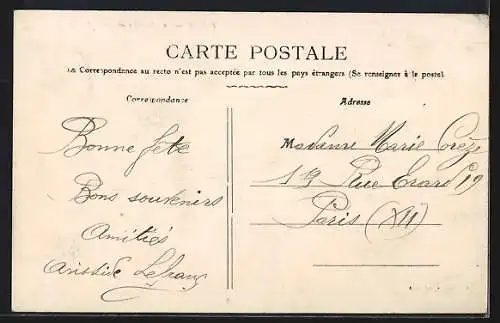 CARTE POSTALE
La Correspondance au recto n'est pas acceptée par tous les pays étrangers (Se renseigner à la poste).
Correspondance
Adresse
Bonne fête
Bons souvenirs
Amitiés
Aristide
Madame Marie
19 Rue Erard 19
Paris (XII)